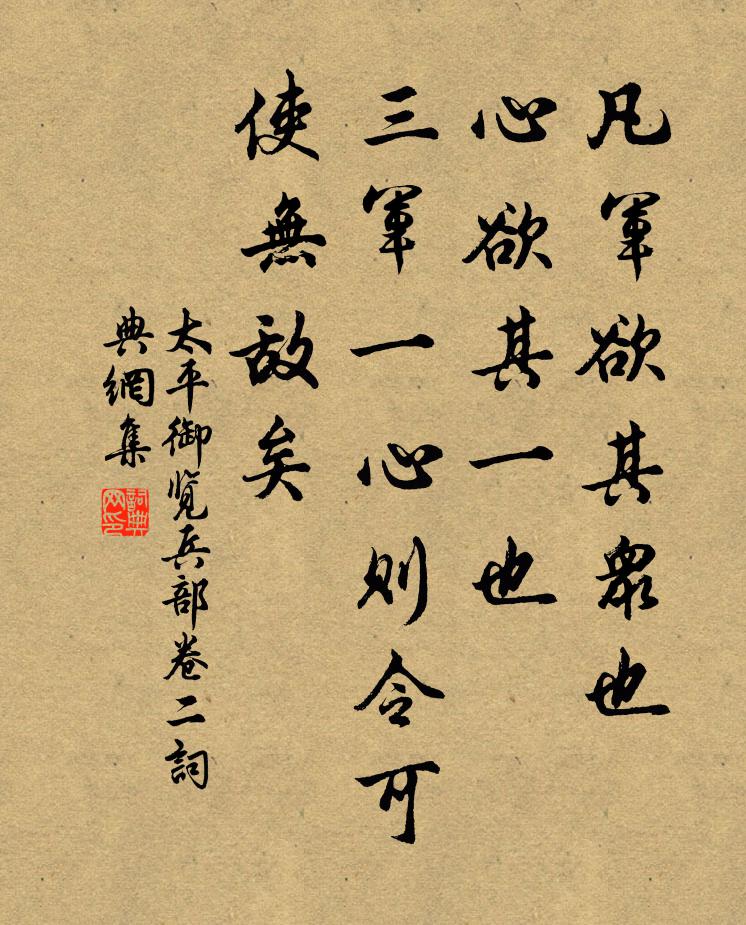 凡軍欲其衆也
心欲其一也
三軍一心則令可
使無敵矣
太平御览兵部卷二詞
典網集
詞典
网印